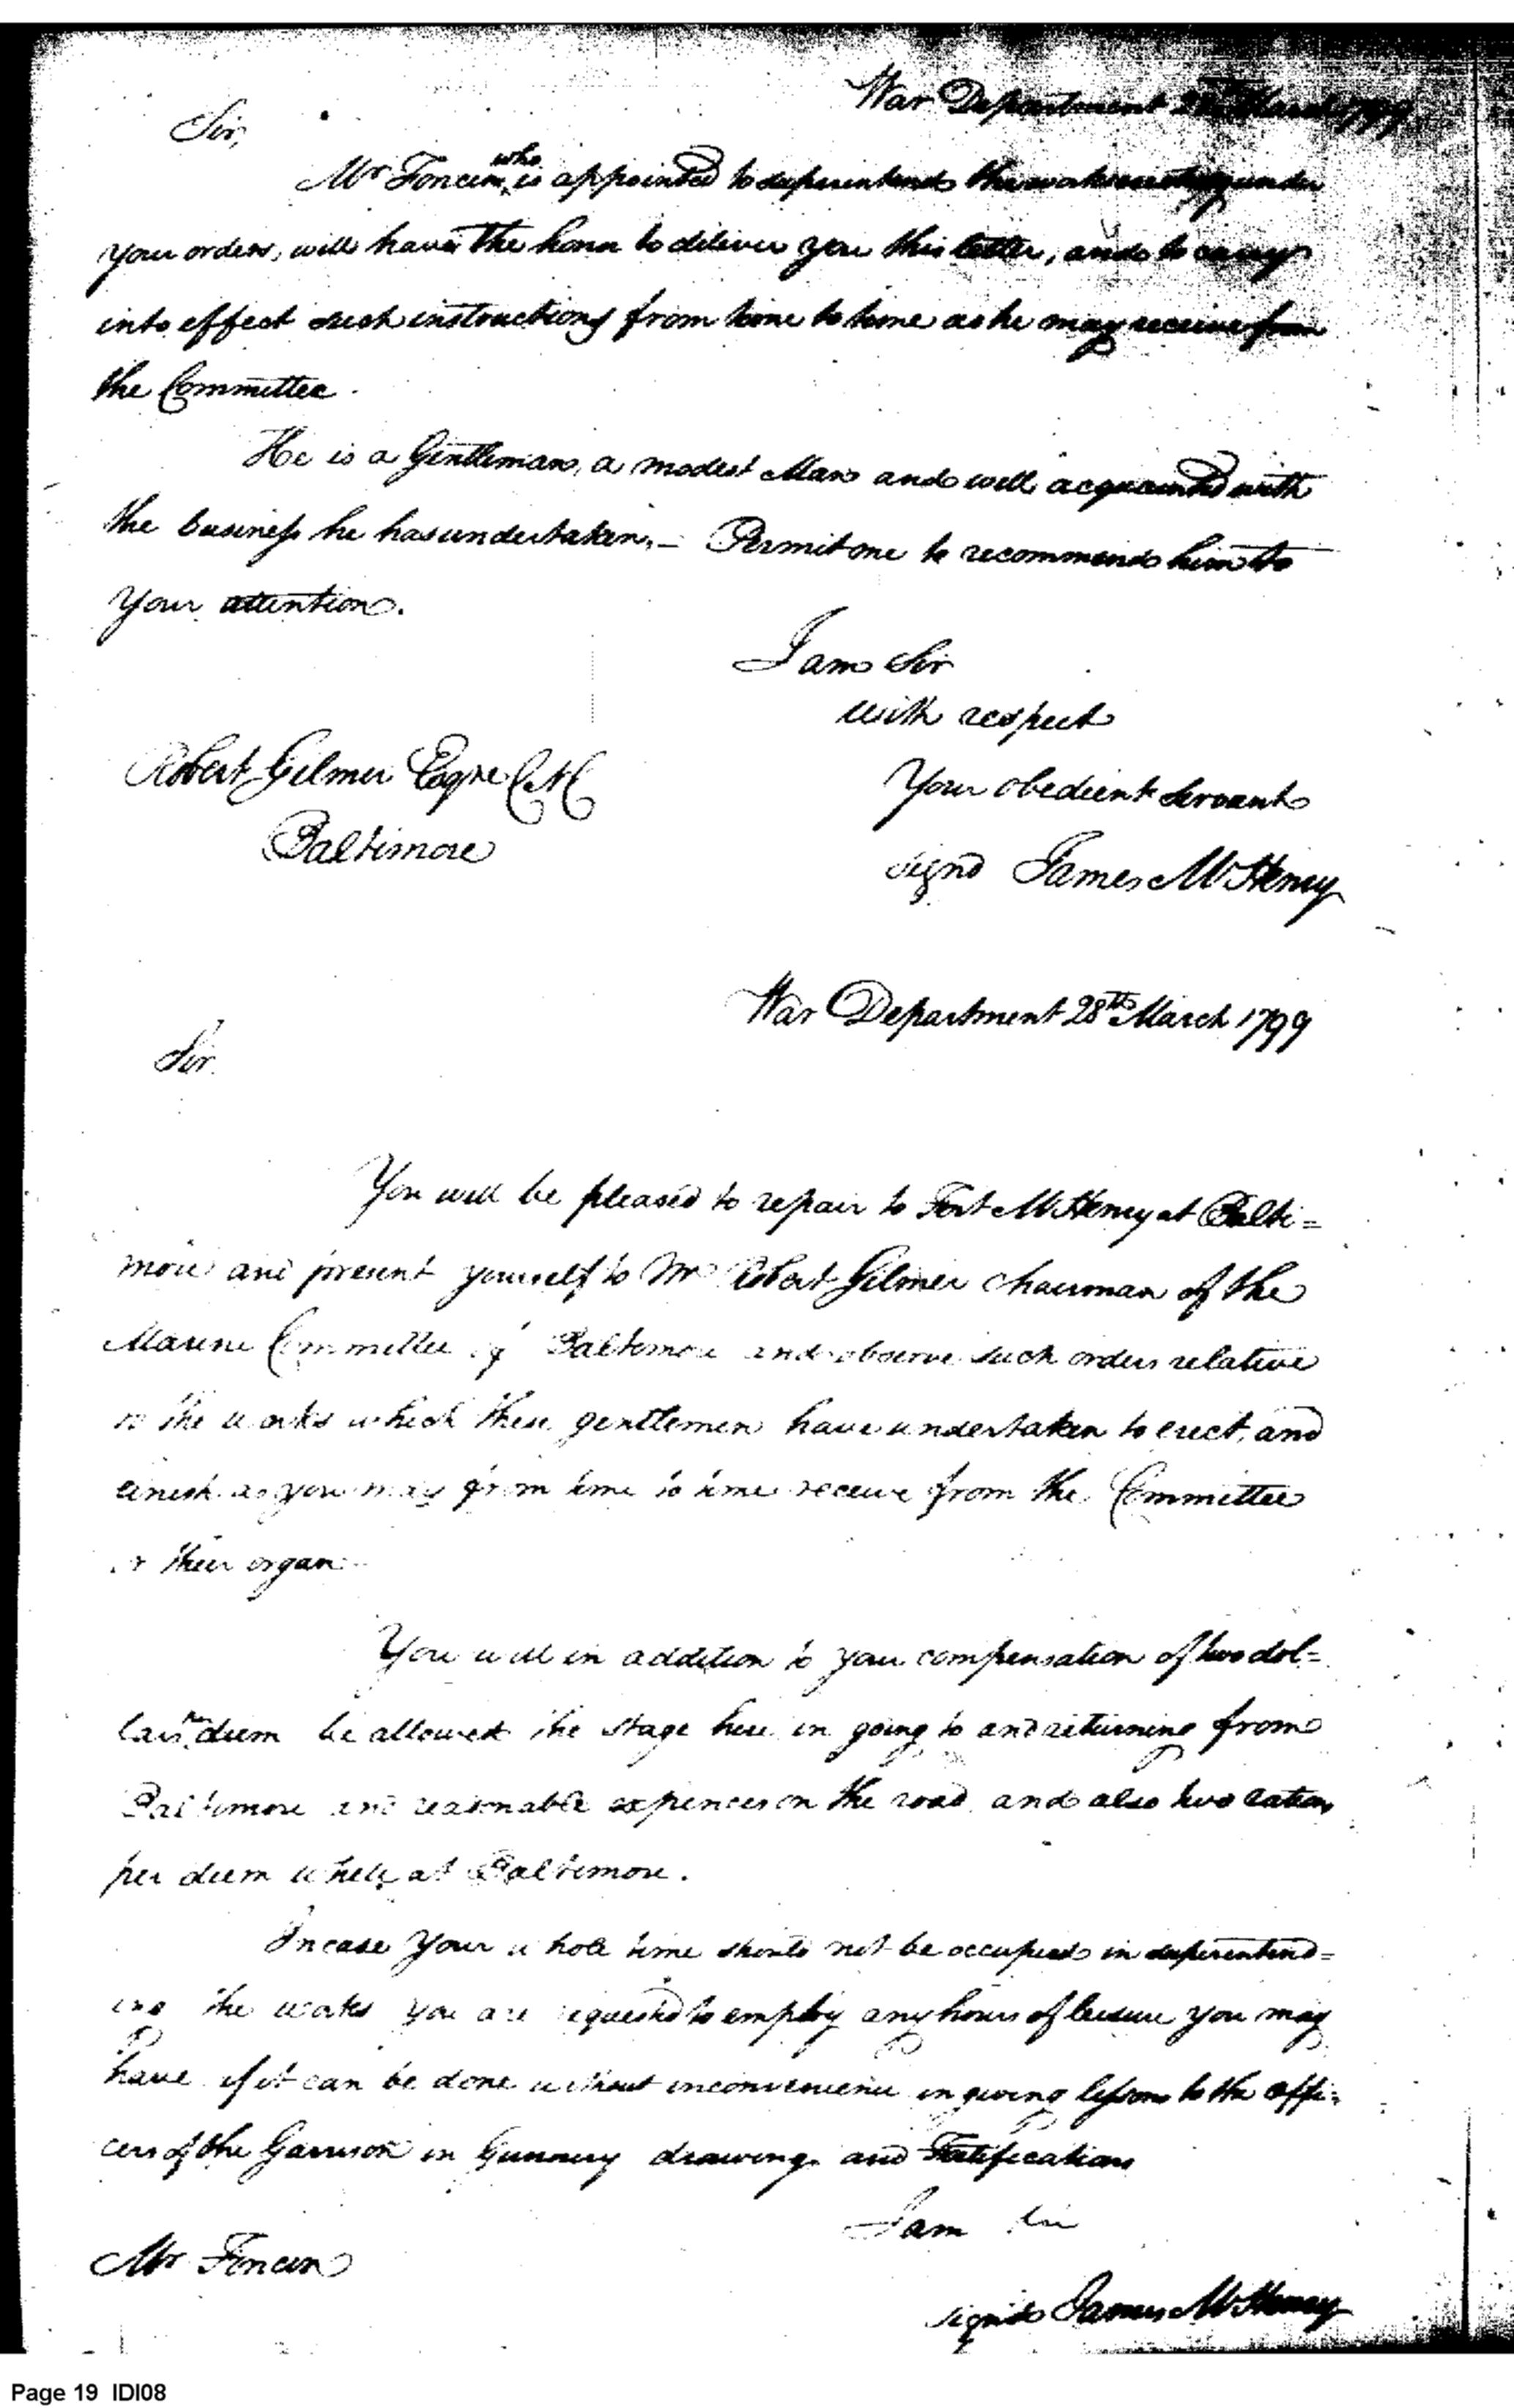 War Department 28th March 1799
Sir,
Mr Foncin who is appointed to superintend the works erecting under
your orders, will have the honor to deliver you this letter, and to carry
into effect such instructions from time to time as he may receive from
the Committee.
He is a Gentleman, a modest Man and well acquainted with
the business he has undertaken. — Permit me to recommend him to
your attention.
I am Sir
with respect
Your obedient servant
signd James McHenry
Robert Gilmer Esqre
Baltimore
War Department 28th March 1799
Sir.
You will be pleased to repair to Fort McHenry at Balti=
more and present yourself to Mr Robert Gilmer chairman of the
Marine Committee of Baltimore and observe such orders relative
to the works which these gentlemen have undertaken to erect and
finish as you may from time to time receive from the Committee
or their organ
You will in addition to your compensation of two dol=
lars per diem be allowed the stage hire in going to and returning from
Baltimore and reasonable expences on the road and also two rations
per diem while at Baltimore.
In case your whole time should not be occupied in superintend=
ing the works you are requested to employ any hours of leisure you may
have if it can be done without inconvenience in giving lessons to the offi=
cers of the Garrison in Gunnery drawing and Fortification
I am Sir
Mr Foncin
signd James McHenry
Page 19 IDI08